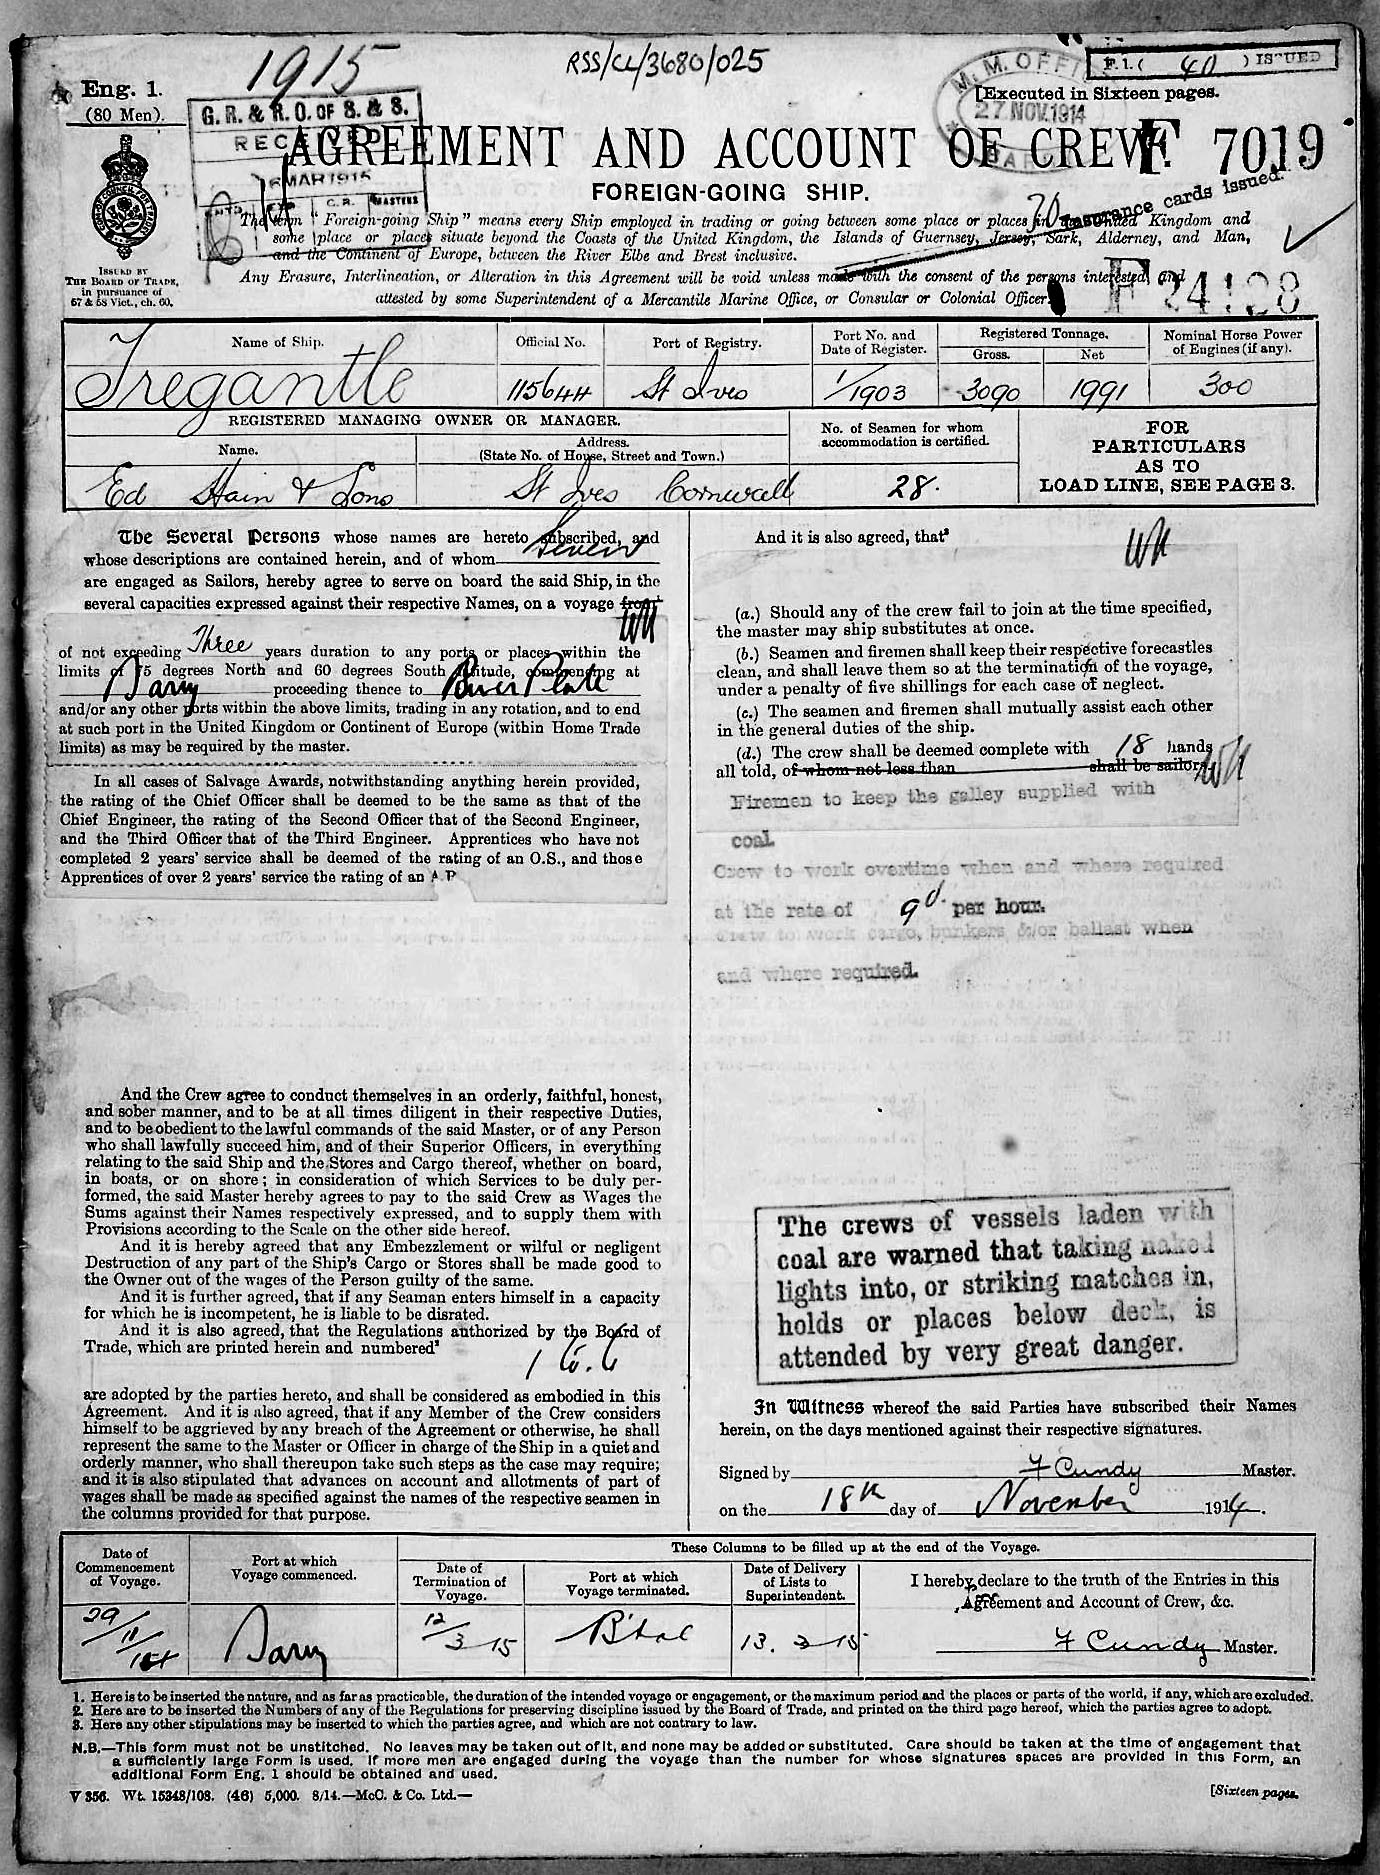 1915
RSS/CL/3680/025
F.1. ( 40 ) ISSUED
Eng. 1.
(80 Men).
G. R. & R. O. OF S. & S.
RECEIVED
16 MAR 1915
C.R. MASTERS
M. M. OFFI
27 NOV. 1914
BAR
[Executed in Sixteen pages.
AGREEMENT AND ACCOUNT OF CREW.
F 7019
FOREIGN-GOING SHIP.
70 Insurance cards issued.
The term "Foreign-going Ship" means every Ship employed in trading or going between some place or places in the United Kingdom and
some place or places situate beyond the Coasts of the United Kingdom, the Islands of Guernsey, Jersey, Sark, Alderney, and Man,
and the Continent of Europe, between the River Elbe and Brest inclusive.
Any Erasure, Interlineation, or Alteration in this Agreement will be void unless made with the consent of the persons interested, and
attested by some Superintendent of a Mercantile Marine Office, or Consular or Colonial Officer.
F 24128
ISSUED BY
THE BOARD OF TRADE,
in pursuance of
57 & 58 Vict., ch. 60.
Name of Ship.
Official No.
Port of Registry.
Port No. and
Date of Register.
Registered Tonnage.
Gross.
Net
Nominal Horse Power
of Engines (if any).
Tregantle
115644
St Ives
1/1903
3090
1991
300
REGISTERED MANAGING OWNER OR MANAGER.
Name.
Address.
(State No. of House, Street and Town.)
No. of Seamen for whom
accommodation is certified.
FOR
PARTICULARS
AS TO
LOAD LINE, SEE PAGE 3.
Ed Hain & Sons
St Ives Cornwall
28.
The Several Persons whose names are hereto subscribed, and
whose descriptions are contained herein, and of whom Seven
are engaged as Sailors, hereby agree to serve on board the said Ship, in the
several capacities expressed against their respective Names, on a voyage from
WH
of not exceeding Three years duration to any ports or places within the
limits of 75 degrees North and 60 degrees South latitude, commencing at
Barry proceeding thence to River Plate
and/or any other ports within the above limits, trading in any rotation, and to end
at such port in the United Kingdom or Continent of Europe (within Home Trade
limits) as may be required by the master.
In all cases of Salvage Awards, notwithstanding anything herein provided,
the rating of the Chief Officer shall be deemed to be the same as that of the
Chief Engineer, the rating of the Second Officer that of the Second Engineer,
and the Third Officer that of the Third Engineer. Apprentices who have not
completed 2 years' service shall be deemed of the rating of an O.S., and those
Apprentices of over 2 years' service the rating of an A.B
And the Crew agree to conduct themselves in an orderly, faithful, honest,
and sober manner, and to be at all times diligent in their respective Duties,
and to be obedient to the lawful commands of the said Master, or of any Person
who shall lawfully succeed him, and of their Superior Officers, in everything
relating to the said Ship and the Stores and Cargo thereof, whether on board,
in boats, or on shore; in consideration of which Services to be duly per-
formed, the said Master hereby agrees to pay to the said Crew as Wages the
Sums against their Names respectively expressed, and to supply them with
Provisions according to the Scale on the other side hereof.
And it is hereby agreed that any Embezzlement or wilful or negligent
Destruction of any part of the Ship's Cargo or Stores shall be made good to
the Owner out of the wages of the Person guilty of the same.
And it is further agreed, that if any Seaman enters himself in a capacity
for which he is incompetent, he is liable to be disrated.
And it is also agreed, that the Regulations authorized by the Board of
Trade, which are printed herein and numbered²
1 to 6
are adopted by the parties hereto, and shall be considered as embodied in this
Agreement. And it is also agreed, that if any Member of the Crew considers
himself to be aggrieved by any breach of the Agreement or otherwise, he shall
represent the same to the Master or Officer in charge of the Ship in a quiet and
orderly manner, who shall thereupon take such steps as the case may require;
and it is also stipulated that advances on account and allotments of part of
wages shall be made as specified against the names of the respective seamen in
the columns provided for that purpose.
And it is also agreed, that³
WH
(a.) Should any of the crew fail to join at the time specified,
the master may ship substitutes at once.
(b.) Seamen and firemen shall keep their respective forecastles
clean, and shall leave them so at the termination of the voyage,
under a penalty of five shillings for each case of neglect.
(c.) The seamen and firemen shall mutually assist each other
in the general duties of the ship.
(d.) The crew shall be deemed complete with 18 hands
all told, of whom not less than shall be sailors
WH
Firemen to keep the galley supplied with
coal.
Crew to work overtime when and where required
at the rate of 9d. per hour.
Crew to work cargo, bunkers &/or ballast when
and where required.
The crews of vessels laden with
coal are warned that taking naked
lights into, or striking matches in,
holds or places below deck, is
attended by very great danger.
In Witness whereof the said Parties have subscribed their Names
herein, on the days mentioned against their respective signatures.
Signed by F Cundy Master.
on the 18th day of November 1914.
Date of
Commencement
of Voyage.
Port at which
Voyage commenced.
These Columns to be filled up at the end of the Voyage.
Date of
Termination of
Voyage.
Port at which
Voyage terminated.
Date of Delivery
of Lists to
Superintendent.
I hereby declare to the truth of the Entries in this
Agreement and Account of Crew, &c.
29/11/14
Barry
12/3 15
B'tol
13. 3 15
F Cundy Master.
1. Here is to be inserted the nature, and as far as practicable, the duration of the intended voyage or engagement, or the maximum period and the places or parts of the world, if any, which are excluded.
2. Here are to be inserted the Numbers of any of the Regulations for preserving discipline issued by the Board of Trade, and printed on the third page hereof, which the parties agree to adopt.
3. Here any other stipulations may be inserted to which the parties agree, and which are not contrary to law.
N.B.—This form must not be unstitched. No leaves may be taken out of it, and none may be added or substituted. Care should be taken at the time of engagement that
a sufficiently large Form is used. If more men are engaged during the voyage than the number for whose signatures spaces are provided in this Form, an
additional Form Eng. 1 should be obtained and used.
V 356. Wt. 15348/108. (46) 5,000. 8/14.—McC. & Co. Ltd.—
[Sixteen pages.